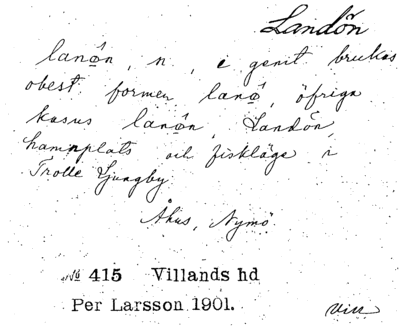 Landön
lanø̄n, n., i genit. brukas
obest. formen lanø̄, öfriga
kasus lanø̄n, Landön,
hamnplats och fiskläge i
Trolle Ljungby
Åhus, Nymö.
№ 415 Villands hd
Per Larsson 1901.
Vill